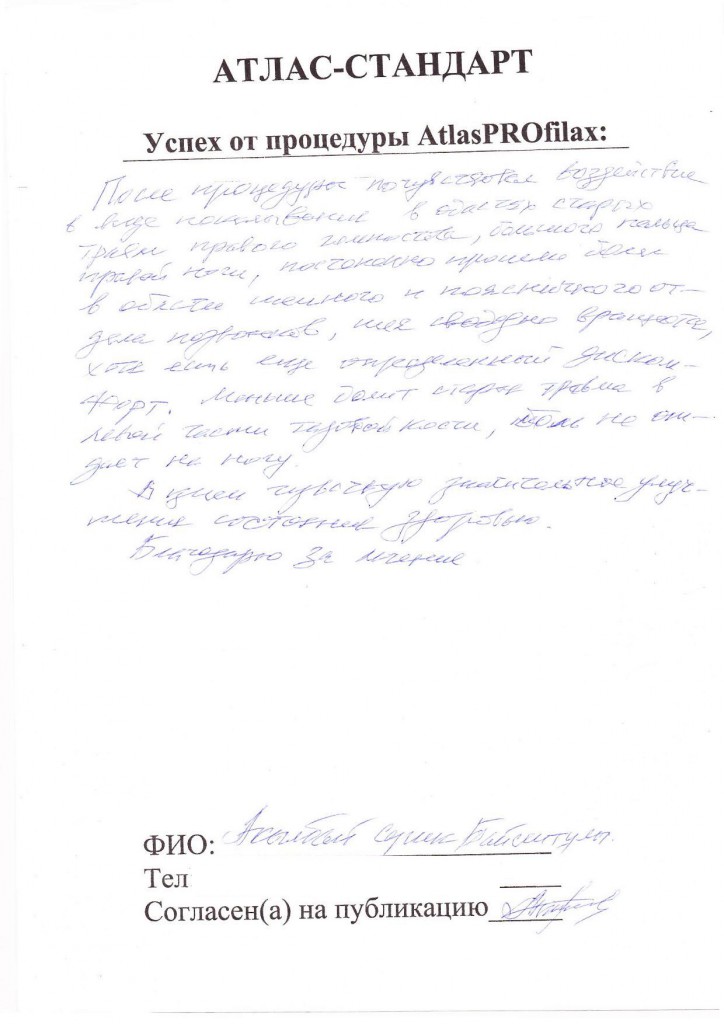 АТЛАС-СТАНДАРТ
Успех от процедуры AtlasPROfilax:
После процедуры почувствовал воздействие
в виде покалывания в областях старых
травм правого голеностопа, большого пальца
правой ноги, постепенно прошли боли
в области шейного и поясничного от-
дела позвонков, шея свободно вращается,
хотя есть еще определенный диском-
форт. Меньше болит старая травма в
левой части тазовой кости, боль не от-
дает на ногу.
В целом чувствую значительное улуч-
шение состояния здоровью.
Благодарю за лечение
ФИО: Асылбай Серик Байсеитулы.
Тел
Согласен(а) на публикацию